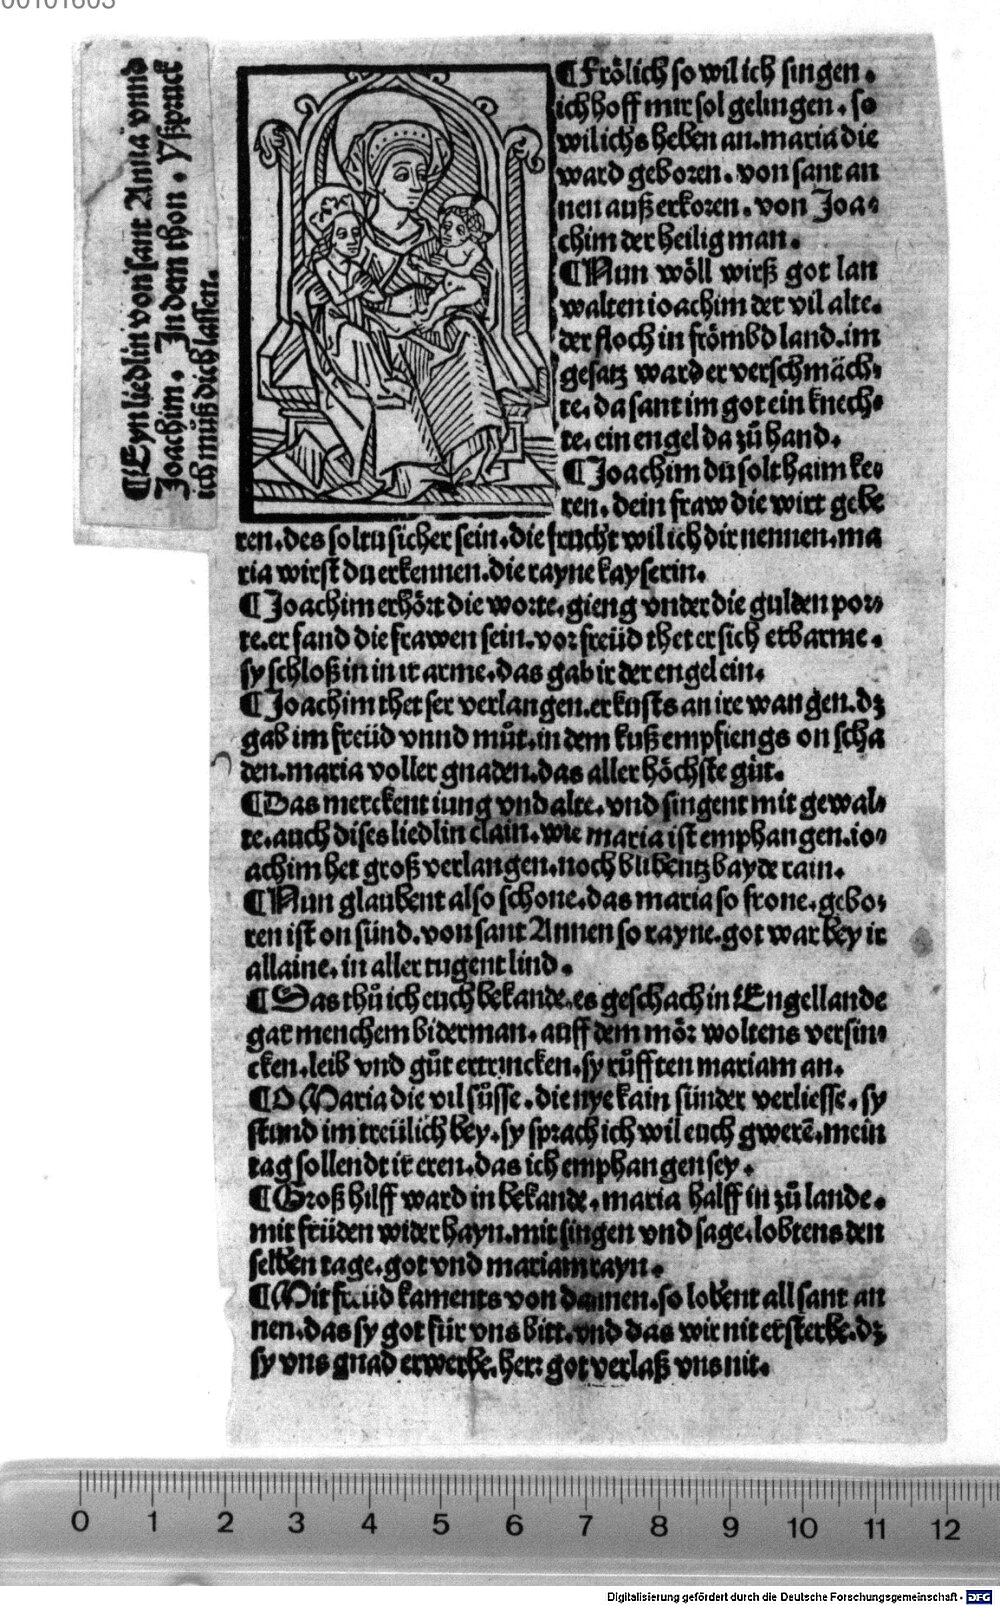 00101603
¶Eyn liedlin von sant Anna vnnd
Joachim. In dem thon. Yßpruck
ich můß dich lassen.
¶Frölich so wil ich singen.
ich hoff mir sol gelingen. so
wil ichs heben an. maria die
ward geboren. von sant an
nen außerkoren. von Joa⸗
chim der heilig man.
¶Nun wöll wirß got lan
walten ioachim der vil alte.
der floch in frömbd land. im
gesatz ward er verschmäch⸗
te. da sant im got ein knech⸗
te. ein engel da zů hand.
¶Joachim du solt haim ke⸗
ren. dein fraw die wirt gebe
ren. des soltu sicher sein. die frucht wil ich dir nennen. ma
ria wirst du erkennen. die rayne kayserin.
¶Joachim erhört die worte. gieng vnder die gulden por⸗
te. er fand die frawen sein. vor freüd thet er sich erbarme.
sy schloß in in ir arme. das gab ir der engel ein.
¶Joachim thet ser verlangen. er kusts an ire wangen. dz
gab im freüd vnnd můt. in dem kuß empfiengs on scha
den. maria voller gnaden. das aller höchste gůt.
¶Das merckent iung vnd alte. vnd singent mit gewal⸗
te. auch dises liedlin clain. wie maria ist emphangen. io⸗
achim het groß verlangen. noch blibentz bayde rain.
¶Nun glaubent also schone. das maria so frone. gebo⸗
ren ist on sünd. von sant Annen so rayne. got war bey ir
allaine. in aller tugent lind.
¶Das thů ich euch bekande. es geschach in Engellande
gar menchem biderman. auff dem mör woltens versin⸗
cken. leib vnd gůt ertrincken. sy růfften mariam an.
¶O Maria die vil sůsse. die nye kain sünder verliesse. sy
stund im treülich bey. sy sprach ich wil euch gwerē. mein
tag sollendt ir eren. das ich emphangen sey.
¶Groß hilff ward in bekande. maria halff in zů lande.
mit früden wider hayn. mit singen vnd sage. lobtens den
selben tage. got vnd mariam rayn.
¶Mit freüd kaments von dannen. so lobent all sant an
nen. das sy got für vns bitt. vnd das wir nit ersterbe. dz
sy vns gnad erwerbe. herr got verlaß vns nit.
0 1 2 3 4 5 6 7 8 9 10 11 12
Digitalisierung gefördert durch die Deutsche Forschungsgemeinschaft - DFG